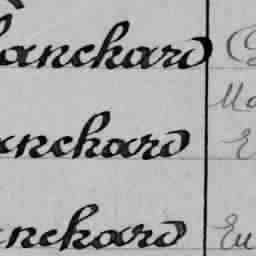 lanchard
Ma
anchard E
nchard Eu